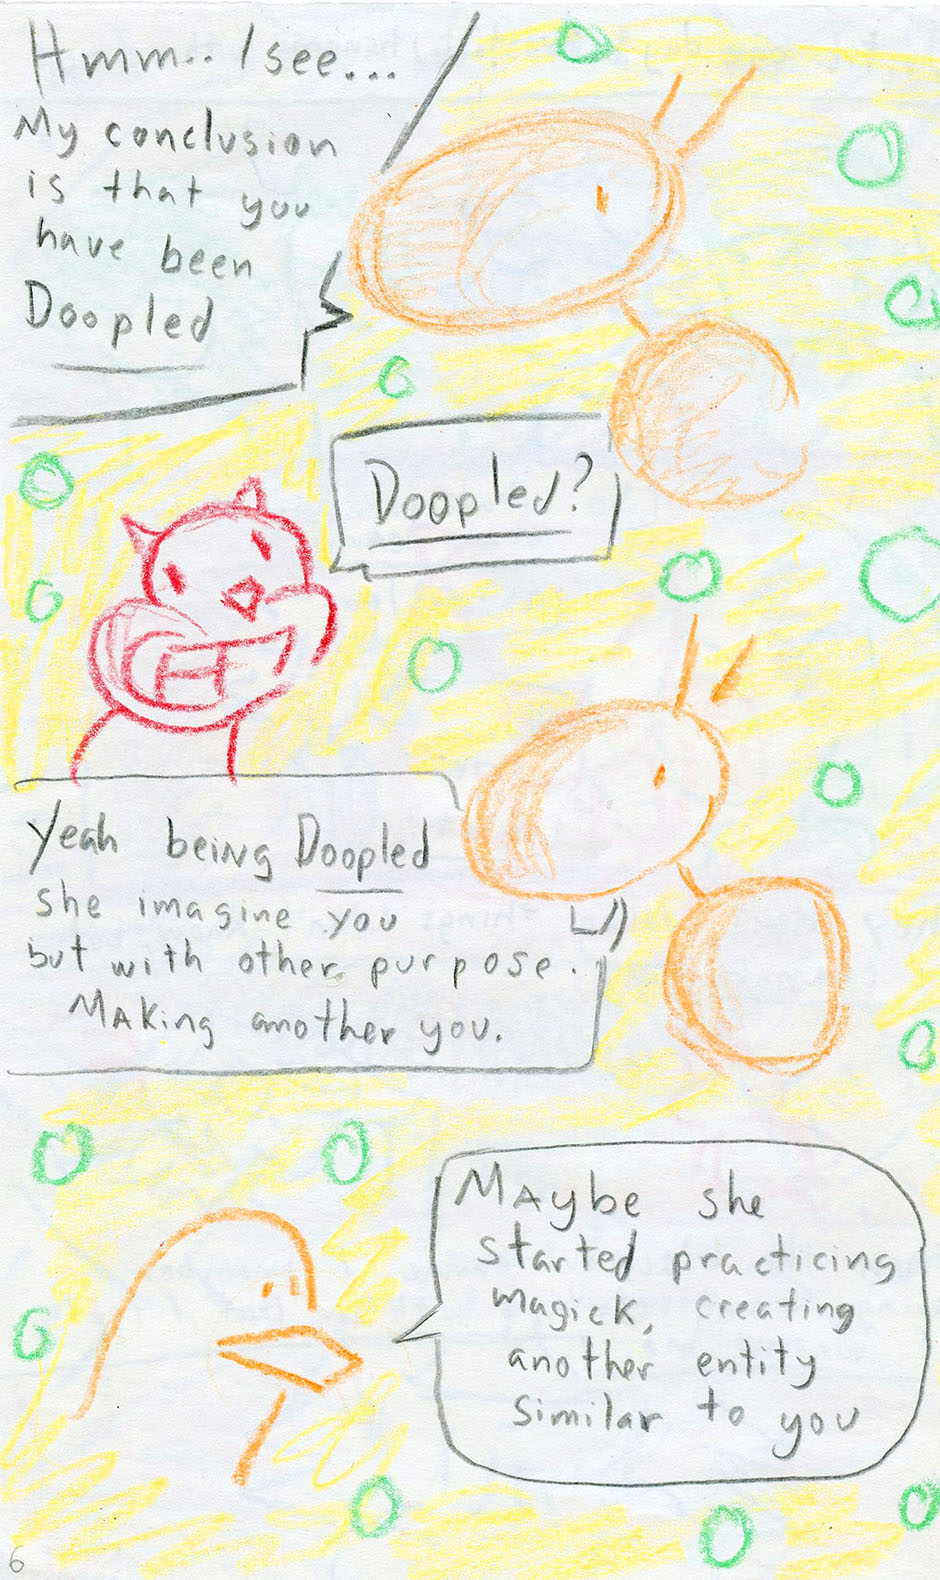 Hmm.. I see...
My conclusion
is that you
have been
Doopled
Doopled?
Yeah being Doopled
she imagine you
but with other purpose.
Making another you.
Maybe she
started practicing
magick, creating
another entity
similar to you
6